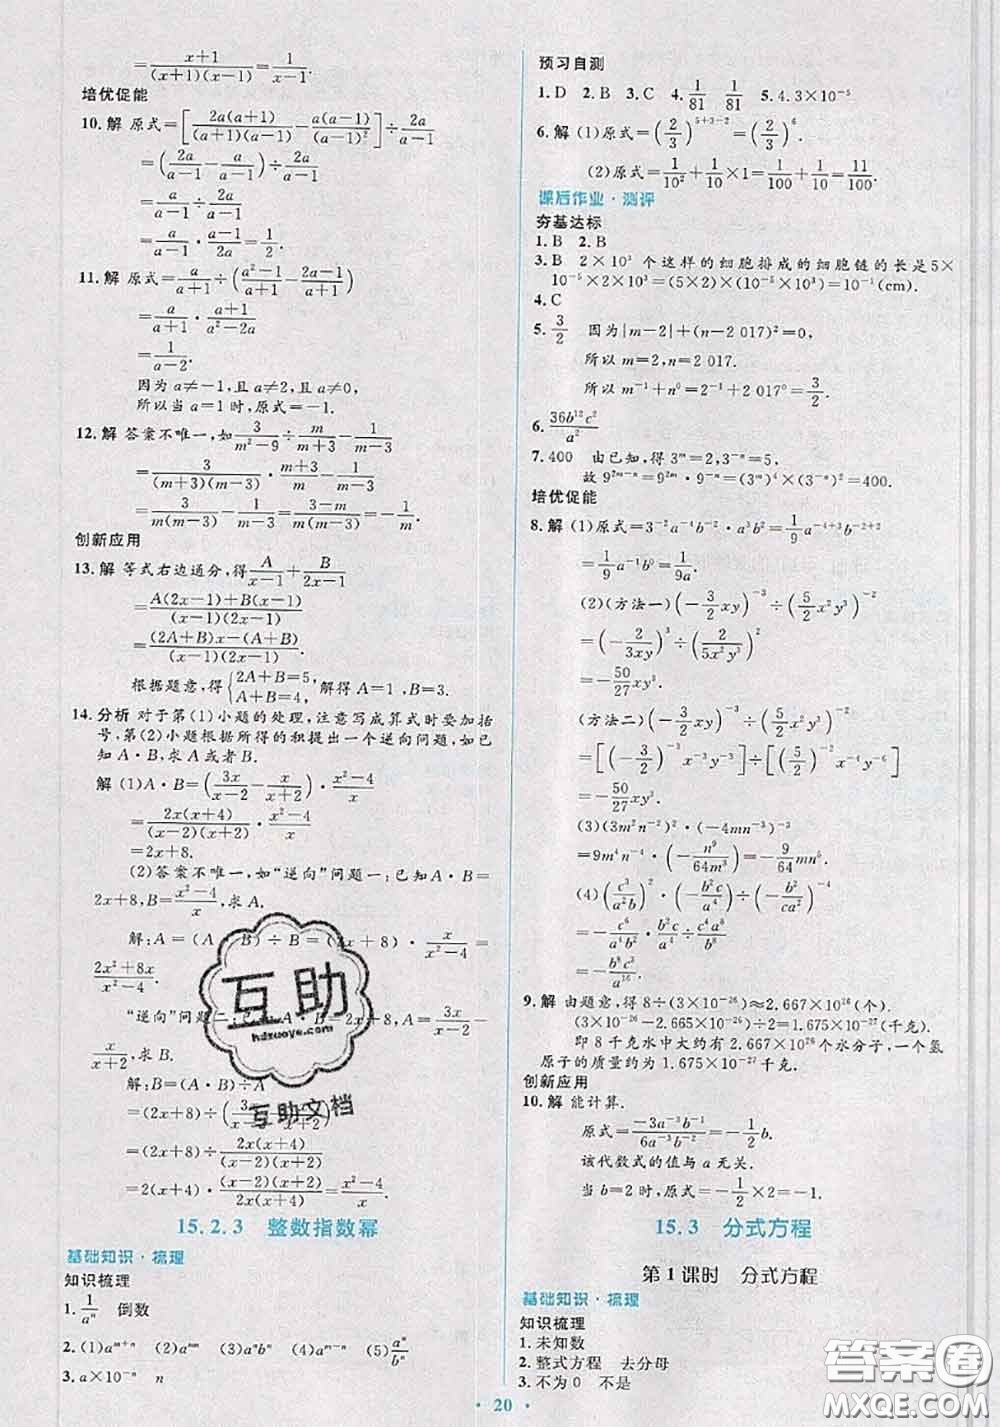 =\frac{x+1}{(x+1)(x-1)}=\frac{1}{x-1}.
培优促能
10.解 原式=[\frac{2a(a+1)}{(a+1)(a-1)}-\frac{a(a-1)}{(a-1)^2}]÷\frac{2a}{a-1}
=(\frac{2a}{a-1}-\frac{a}{a-1})÷\frac{2a}{a-1}
=\frac{a}{a-1}÷\frac{2a}{a-1}
=\frac{a}{a-1}·\frac{a-1}{2a}=\frac{1}{2}.
11.解 原式=\frac{a}{a+1}÷(\frac{a^2-1}{a+1}-\frac{2a-1}{a+1})
=\frac{a}{a+1}·\frac{a+1}{a^2-2a}
=\frac{1}{a-2}.
因为a≠-1,且a≠2,且a≠0,
所以当a=1时,原式=-1.
12.解 答案不唯一,如\frac{3}{m^2-9}÷\frac{m}{m+3}-\frac{1}{m-3}
=\frac{3}{(m+3)(m-3)}·\frac{m+3}{m}-\frac{1}{m-3}
=\frac{3}{m(m-3)}-\frac{m}{m(m-3)}=-\frac{1}{m}.
创新应用
13.解 等式右边通分,得\frac{A}{x-1}+\frac{B}{2x-1}
=\frac{A(2x-1)+B(x-1)}{(x-1)(2x-1)}
=\frac{(2A+B)x-(A+B)}{(x-1)(2x-1)}.
根据题意,得{2A+B=5, A+B=4, 解得A=1,B=3.
14.分析 对于第(1)小题的处理,注意写成算式时要加括
号,第(2)小题根据所得的积提出一个逆向问题,如已
知A·B,求A或者B.
解 (1)A·B=(\frac{3x}{x-2}-\frac{x}{x+2})·\frac{x^2-4}{x}
=\frac{2x(x+4)}{(x-2)(x+2)}·\frac{x^2-4}{x}
=2x+8.
(2)答案不唯一,如“逆向”问题一:已知A·B=
2x+8,B=\frac{x^2-4}{x},求A.
解:A=(A·B)÷B=(2x+8)·\frac{x}{x^2-4}=
\frac{2x^2+8x}{x^2-4}.
“逆向”问题二:已知A·B=2x+8,A=\frac{3x}{x-2}-
\frac{x}{x+2},求B.
解:B=(A·B)÷A
=(2x+8)÷(\frac{3x}{x-2}-\frac{x}{x+2})
=(2x+8)÷\frac{2x(x+4)}{(x-2)(x+2)}
=2(x+4)·\frac{(x-2)(x+2)}{2x(x+4)}=\frac{x^2-4}{x}.
15.2.3 整数指数幂
基础知识·梳理
知识梳理
1.\frac{1}{a^n} 倒数
2.(1)a^{m+n} (2)a^{mn} (3)a^nb^n (4)a^{m-n} (5)\frac{a^n}{b^n}
3.a×10^{-n} n
预习自测
1.D 2.B 3.C 4.\frac{1}{81} \frac{1}{81} 5.4.3×10^{-5}
6.解 (1)原式=(\frac{2}{3})^{5+3-2}=(\frac{2}{3})^6.
(2)原式=\frac{1}{10^2}+\frac{1}{10}×1=\frac{1}{100}+\frac{1}{10}=\frac{11}{100}.
课后作业·测评
夯基达标
1.B 2.B
3.B 2×10^3 个这样的细胞排成的细胞链的长是5×
10^{-5}×2×10^3=(5×2)×(10^{-5}×10^3)=10^{-1}(cm).
4.C
5.\frac{3}{2} 因为|m-2|+(n-2 017)^2=0,
所以m=2,n=2 017.
所以m^{-1}+n^0=2^{-1}+2 017^0=\frac{3}{2}.
6.\frac{36b^{12}c^2}{a^2}
7.400 由已知,得3^m=2,3^{-n}=5,
故9^{2m-n}=9^{2m}·9^{-n}=(3^m)^4×(3^{-n})^2=400.
培优促能
8.解 (1)原式=3^{-2}a^{-4}b^{-2}·a^3b^2=\frac{1}{9}a^{-4+3}b^{-2+2}
=\frac{1}{9}a^{-1}b^0=\frac{1}{9a}.
(2)(方法一)(-\frac{3}{2}xy)^{-3}÷(\frac{5}{2}x^2y^3)^{-2}
=(-\frac{2}{3xy})^3÷(\frac{2}{5x^2y^3})^2
=-\frac{50}{27}xy^3.
(方法二)(-\frac{3}{2}xy)^{-3}÷(\frac{5}{2}x^2y^3)^{-2}
=[(-\frac{3}{2})^{-3}x^{-3}y^{-3}]÷[(\frac{5}{2})^{-2}x^{-4}y^{-6}]
=-\frac{50}{27}xy^3.
(3)(3m^2n^{-2})^2·(-4mn^{-3})^{-3}
=9m^4n^{-4}·(-\frac{n^9}{64m^3})=-\frac{9}{64}mn^5.
(4)(\frac{c^3}{a^2b})^2·(-\frac{b^2c}{a^4})÷(-\frac{b^2}{ca^2})^{-4}
=-\frac{c^6}{a^4b^2}·\frac{b^2c}{a^4}÷\frac{c^4a^8}{b^8}
=-\frac{b^8c^3}{a^{16}}.
9.解 由题意,得8÷(3×10^{-26})≈2.667×10^{26}(个).
(3×10^{-26}-2.665×10^{-26})÷2=1.675×10^{-27}(千克).
即8千克水中大约有2.667×10^{26}个水分子,一个氢
原子的质量约为1.675×10^{-27}千克.
创新应用
10.解 能计算.
原式=\frac{-3a^{-3}b^{-1}}{6a^{-3}b^{-2}}=-\frac{1}{2}b.
该代数式的值与a无关.
当b=2时,原式=-\frac{1}{2}×2=-1.
15.3 分式方程
第1课时 分式方程
基础知识·梳理
知识梳理
1.未知数
2.整式方程 去分母
3.不为0 不是
·20·
互助
hdzuoye.com
互助文档
答案圈
MXQE.COM